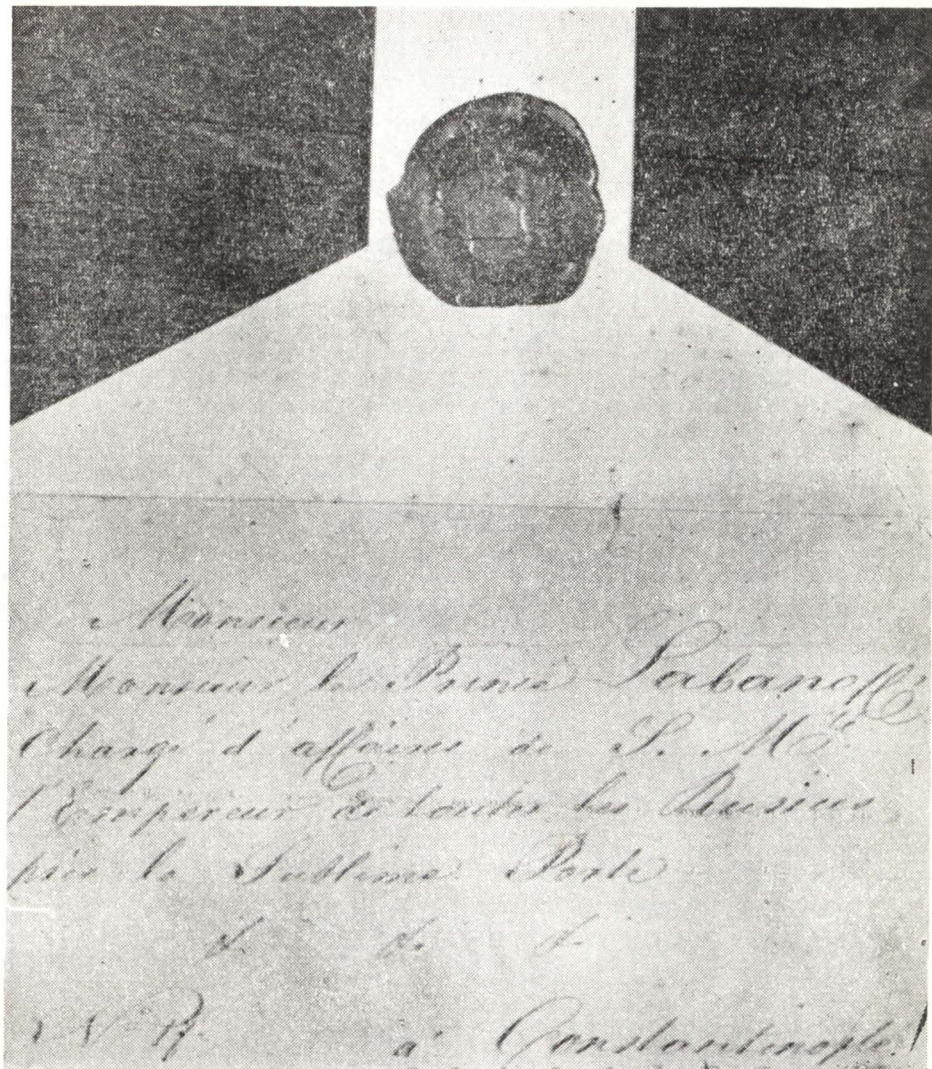 Monsieur
Monsieur le Prince Labanoff
Chargé d'affaires de S. M.té
l'Empereur de toutes les Russies
près la Sublime Porte
&. &. &.
à Constantinople